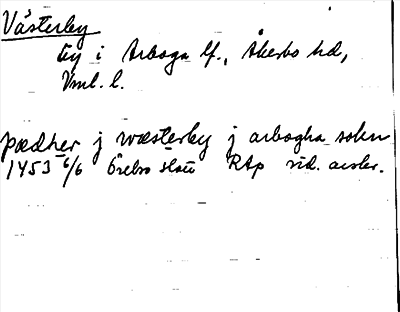 Västerby
by i Arboga lf., Åkerbo hd,
Vml. l.
pædher j wæsterby j arbogha sokn
1453 6/6 Örebro slott RAp sid. avskr.